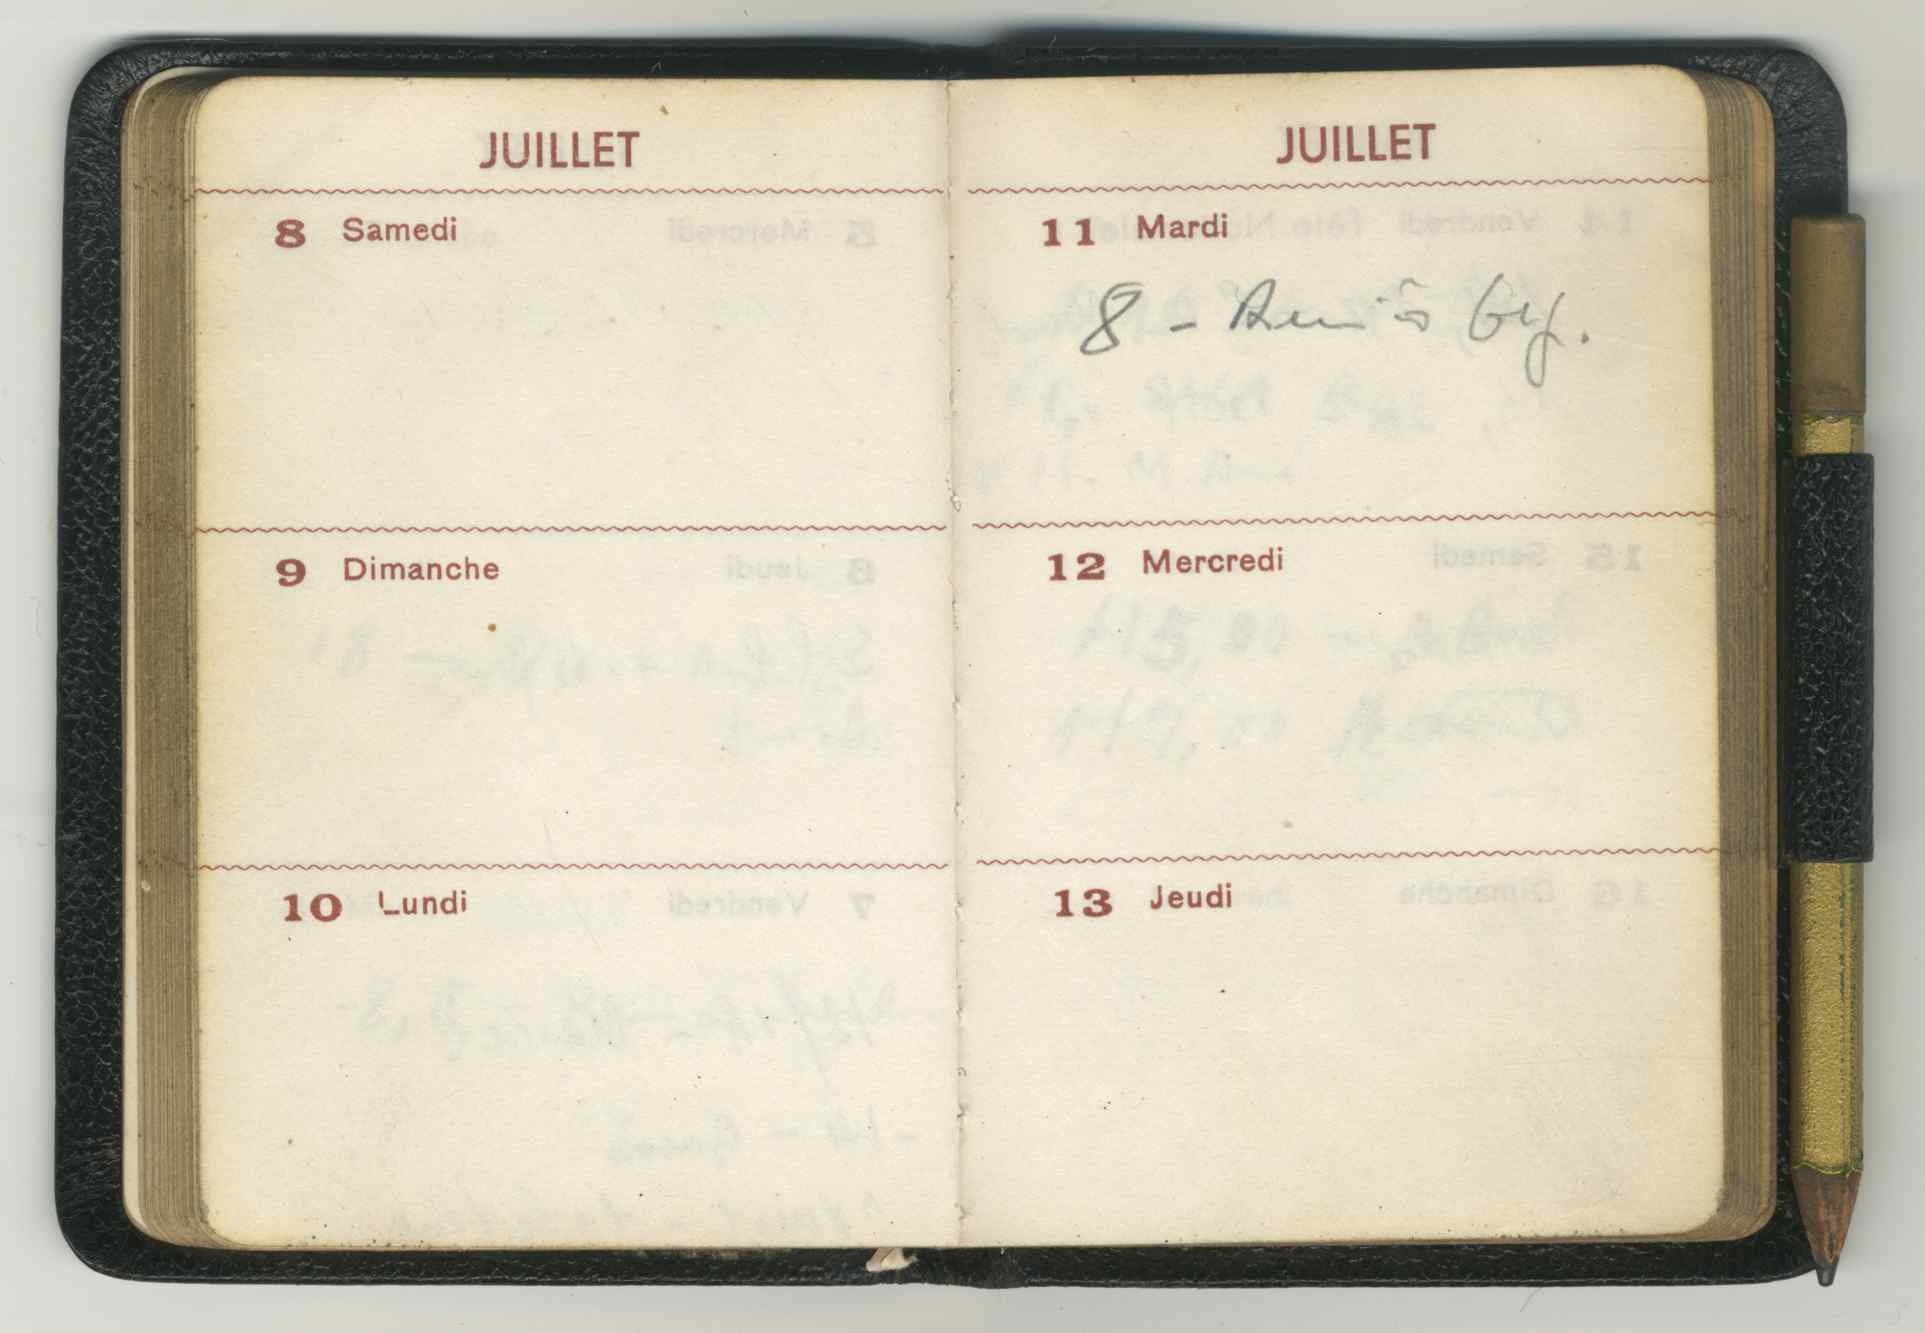 JUILLET
8 Samedi
9 Dimanche
10 Lundi
JUILLET
11 Mardi
8 -
12 Mercredi
13 Jeudi